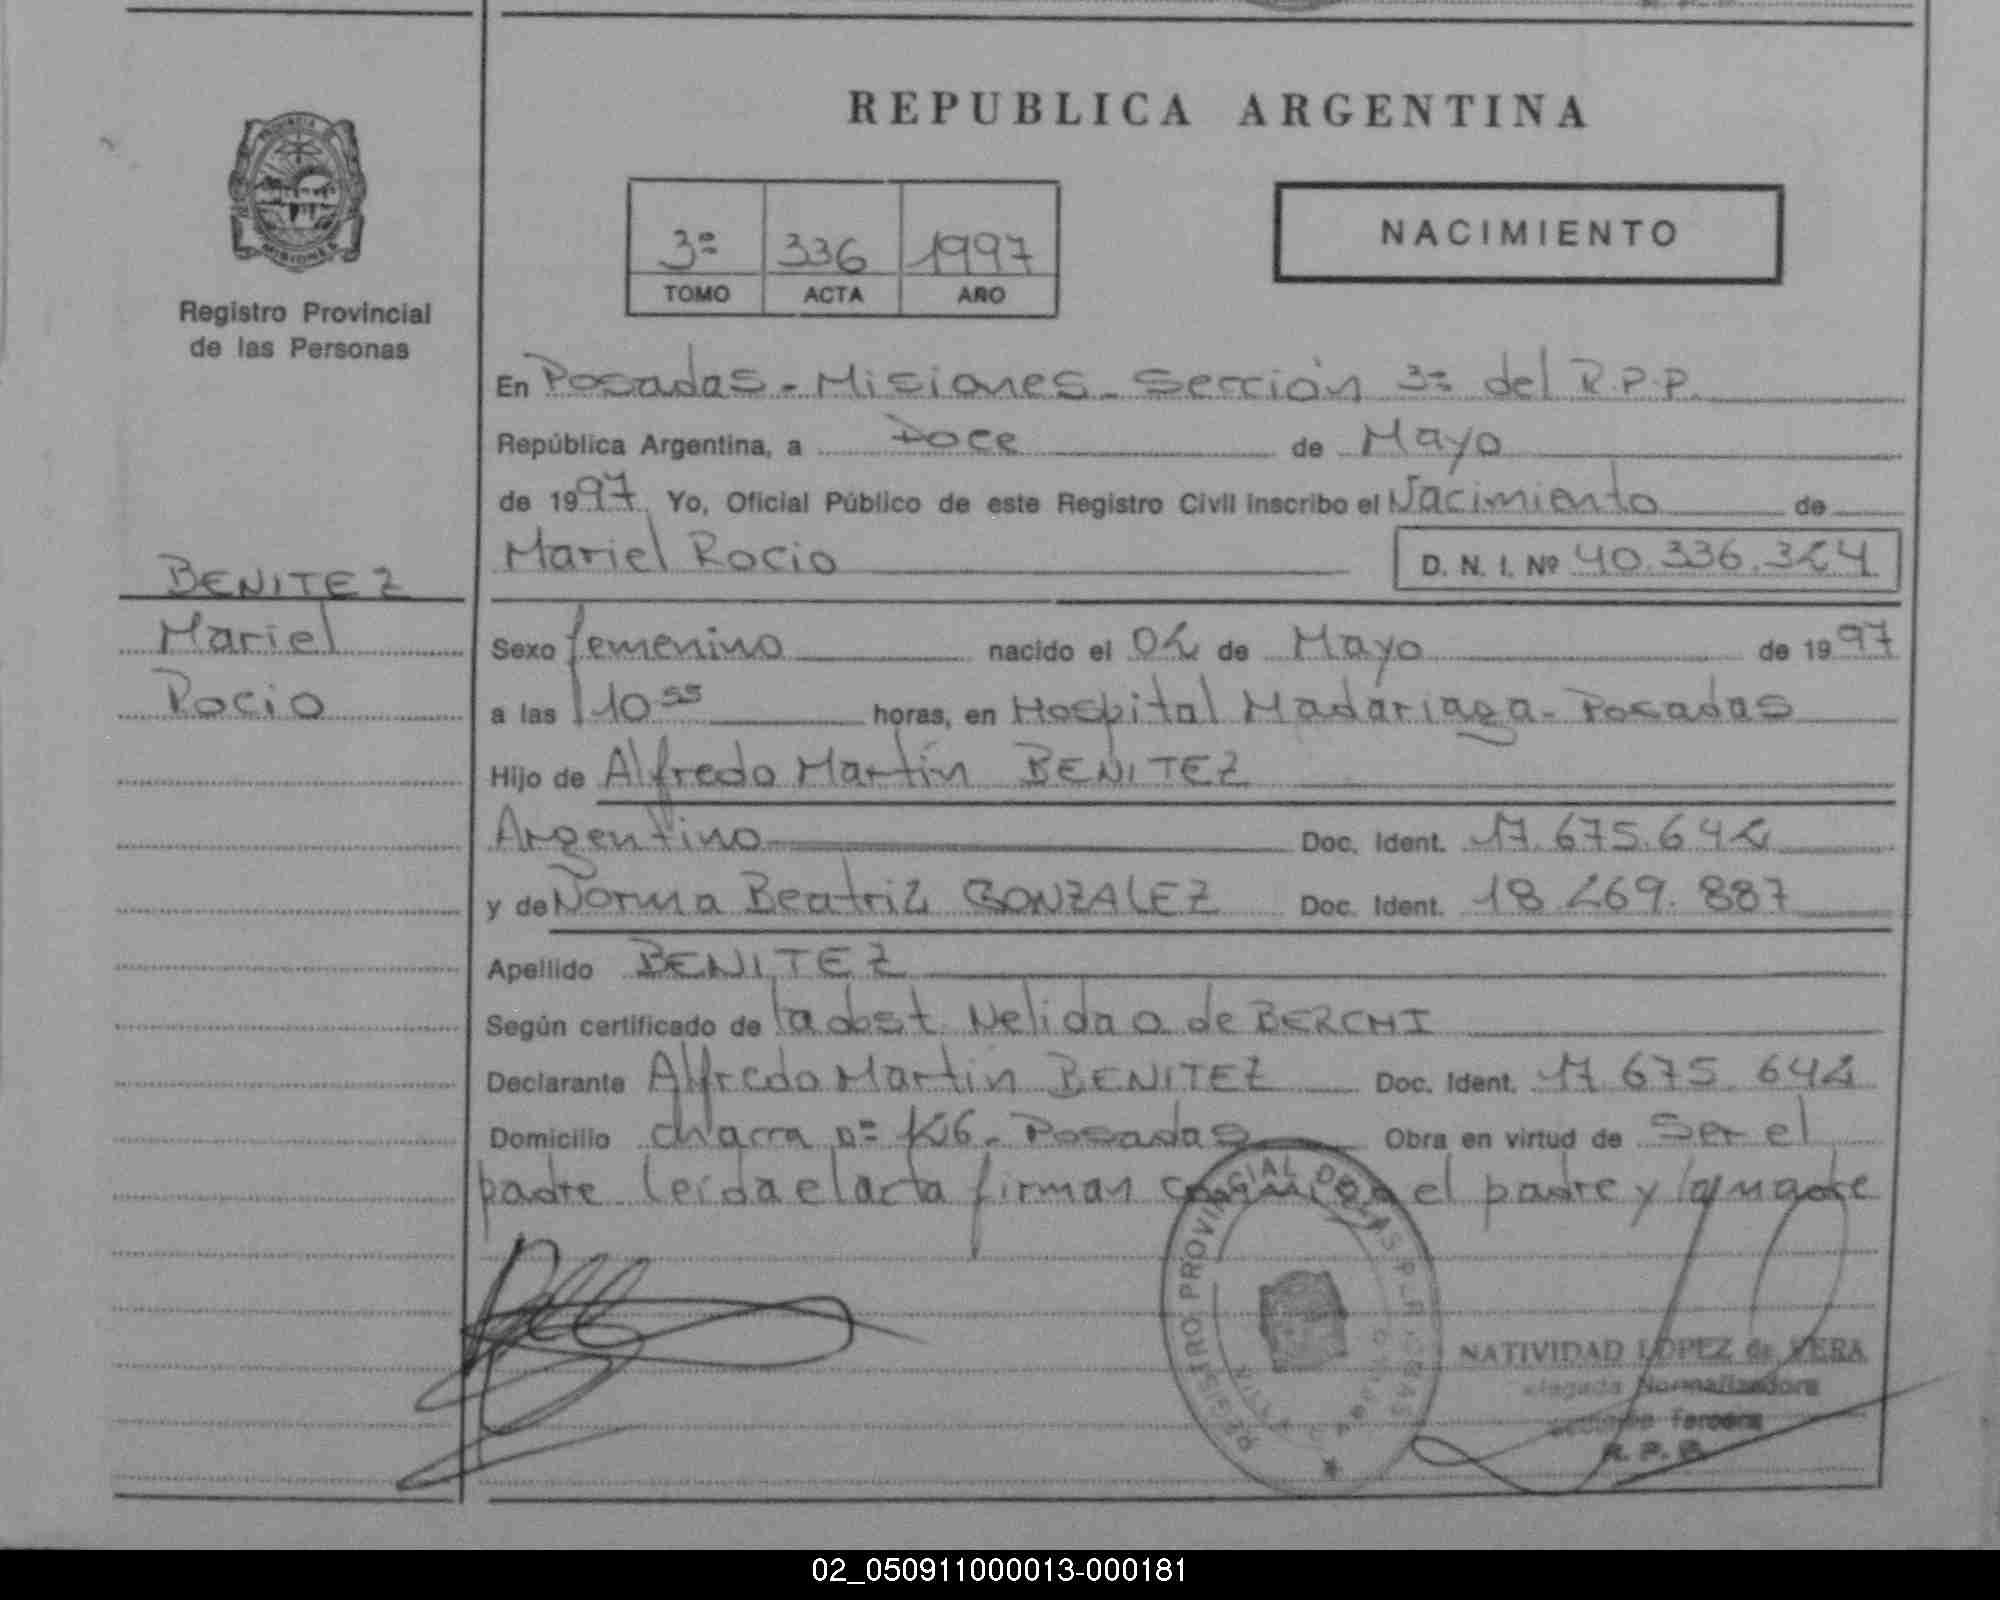 REPUBLICA ARGENTINA
3ª 336 1997
TOMO ACTA AÑO
NACIMIENTO
PROVINCIA DE
MISIONES
Registro Provincial
de las Personas
En Posadas - Misiones - Sección 3ª del R.P.P.
República Argentina, a Doce de Mayo
de 1997 Yo, Oficial Público de este Registro Civil Inscribo el Nacimiento de
Mariel Rocio D. N. I. Nº 40.336.324
BENITEZ
Mariel
Rocio
Sexo femenino nacido el 02 de Mayo de 1997
a las 10 55 horas, en Hospital Madariaga - Posadas
Hijo de Alfredo Martín BENITEZ
Argentino Doc. Ident. 17.675.642
y de Norma Beatriz GONZALEZ Doc. Ident. 18.269.887
Apellido BENITEZ
Según certificado de la obst. Nelida O de BERCHI
Declarante Alfredo Martín BENITEZ Doc. Ident. 17.675.642
Domicilio chacra nº Posadas Obra en virtud de Ser el
padre leída el acta firman conmigo el padre y la madre
REGISTRO PROVINCIAL DE LAS PERSONAS
NATIVIDAD LOPEZ de VERA
Delegada Normalizadora
Sección Tercera
R.P.P.
02_050911000013-000181